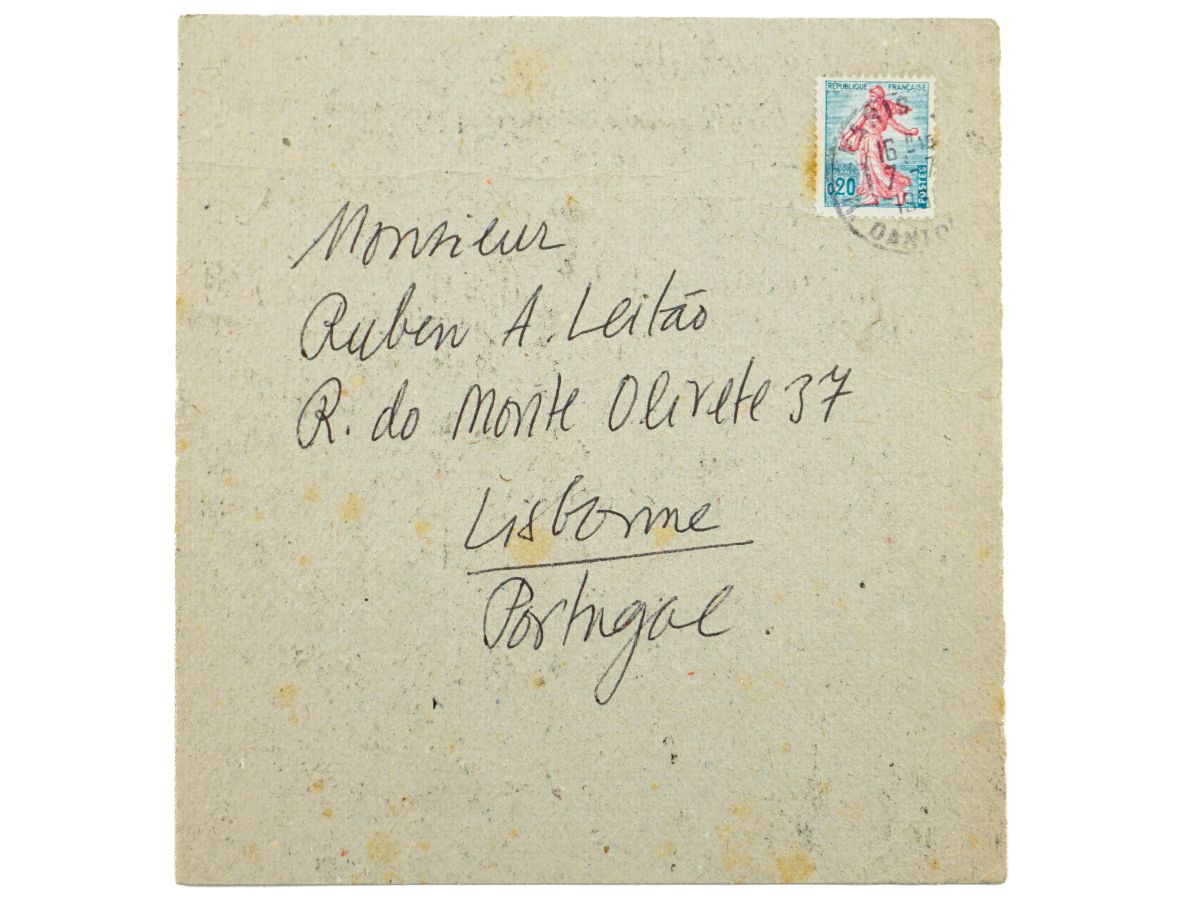 RÉPUBLIQUE FRANÇAISE
0,20
POSTES
PARIS
16
7
DANTON
Monsieur
Ruben A. Leitão
R. do Monte Olivete 37
Lisbonne
Portugal